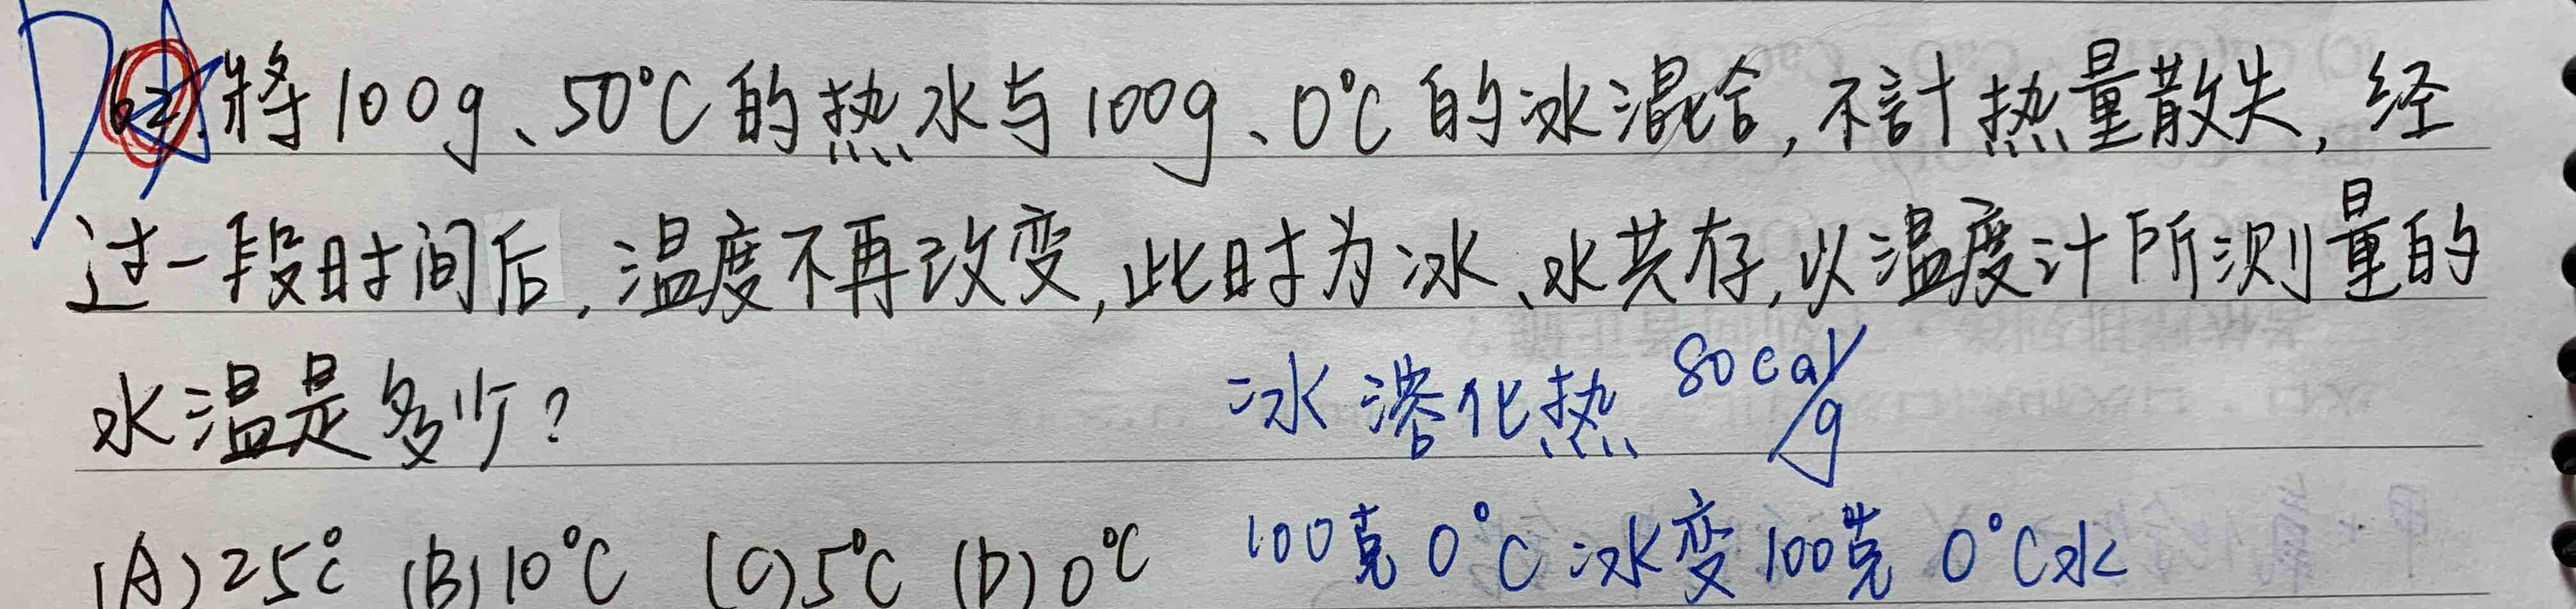 62.将100g、50℃的热水与100g、0℃的冰混合,不計热量散失,经
过一段时间后,温度不再改变,此时为冰、水共存,以温度计所测量的
水温是多少?
冰溶化热 80cal/g
(A)25℃ (B)10℃ (C)5℃ (D)0℃
100克0℃冰变100克 0℃水